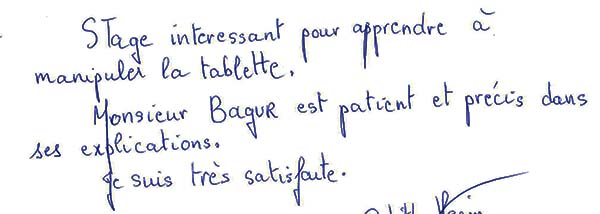 STage interessant pour apprendre à
manipuler la tablette.
Monsieur BaguR est patient et précis dans
ses explications.
Je suis très satisfaite.